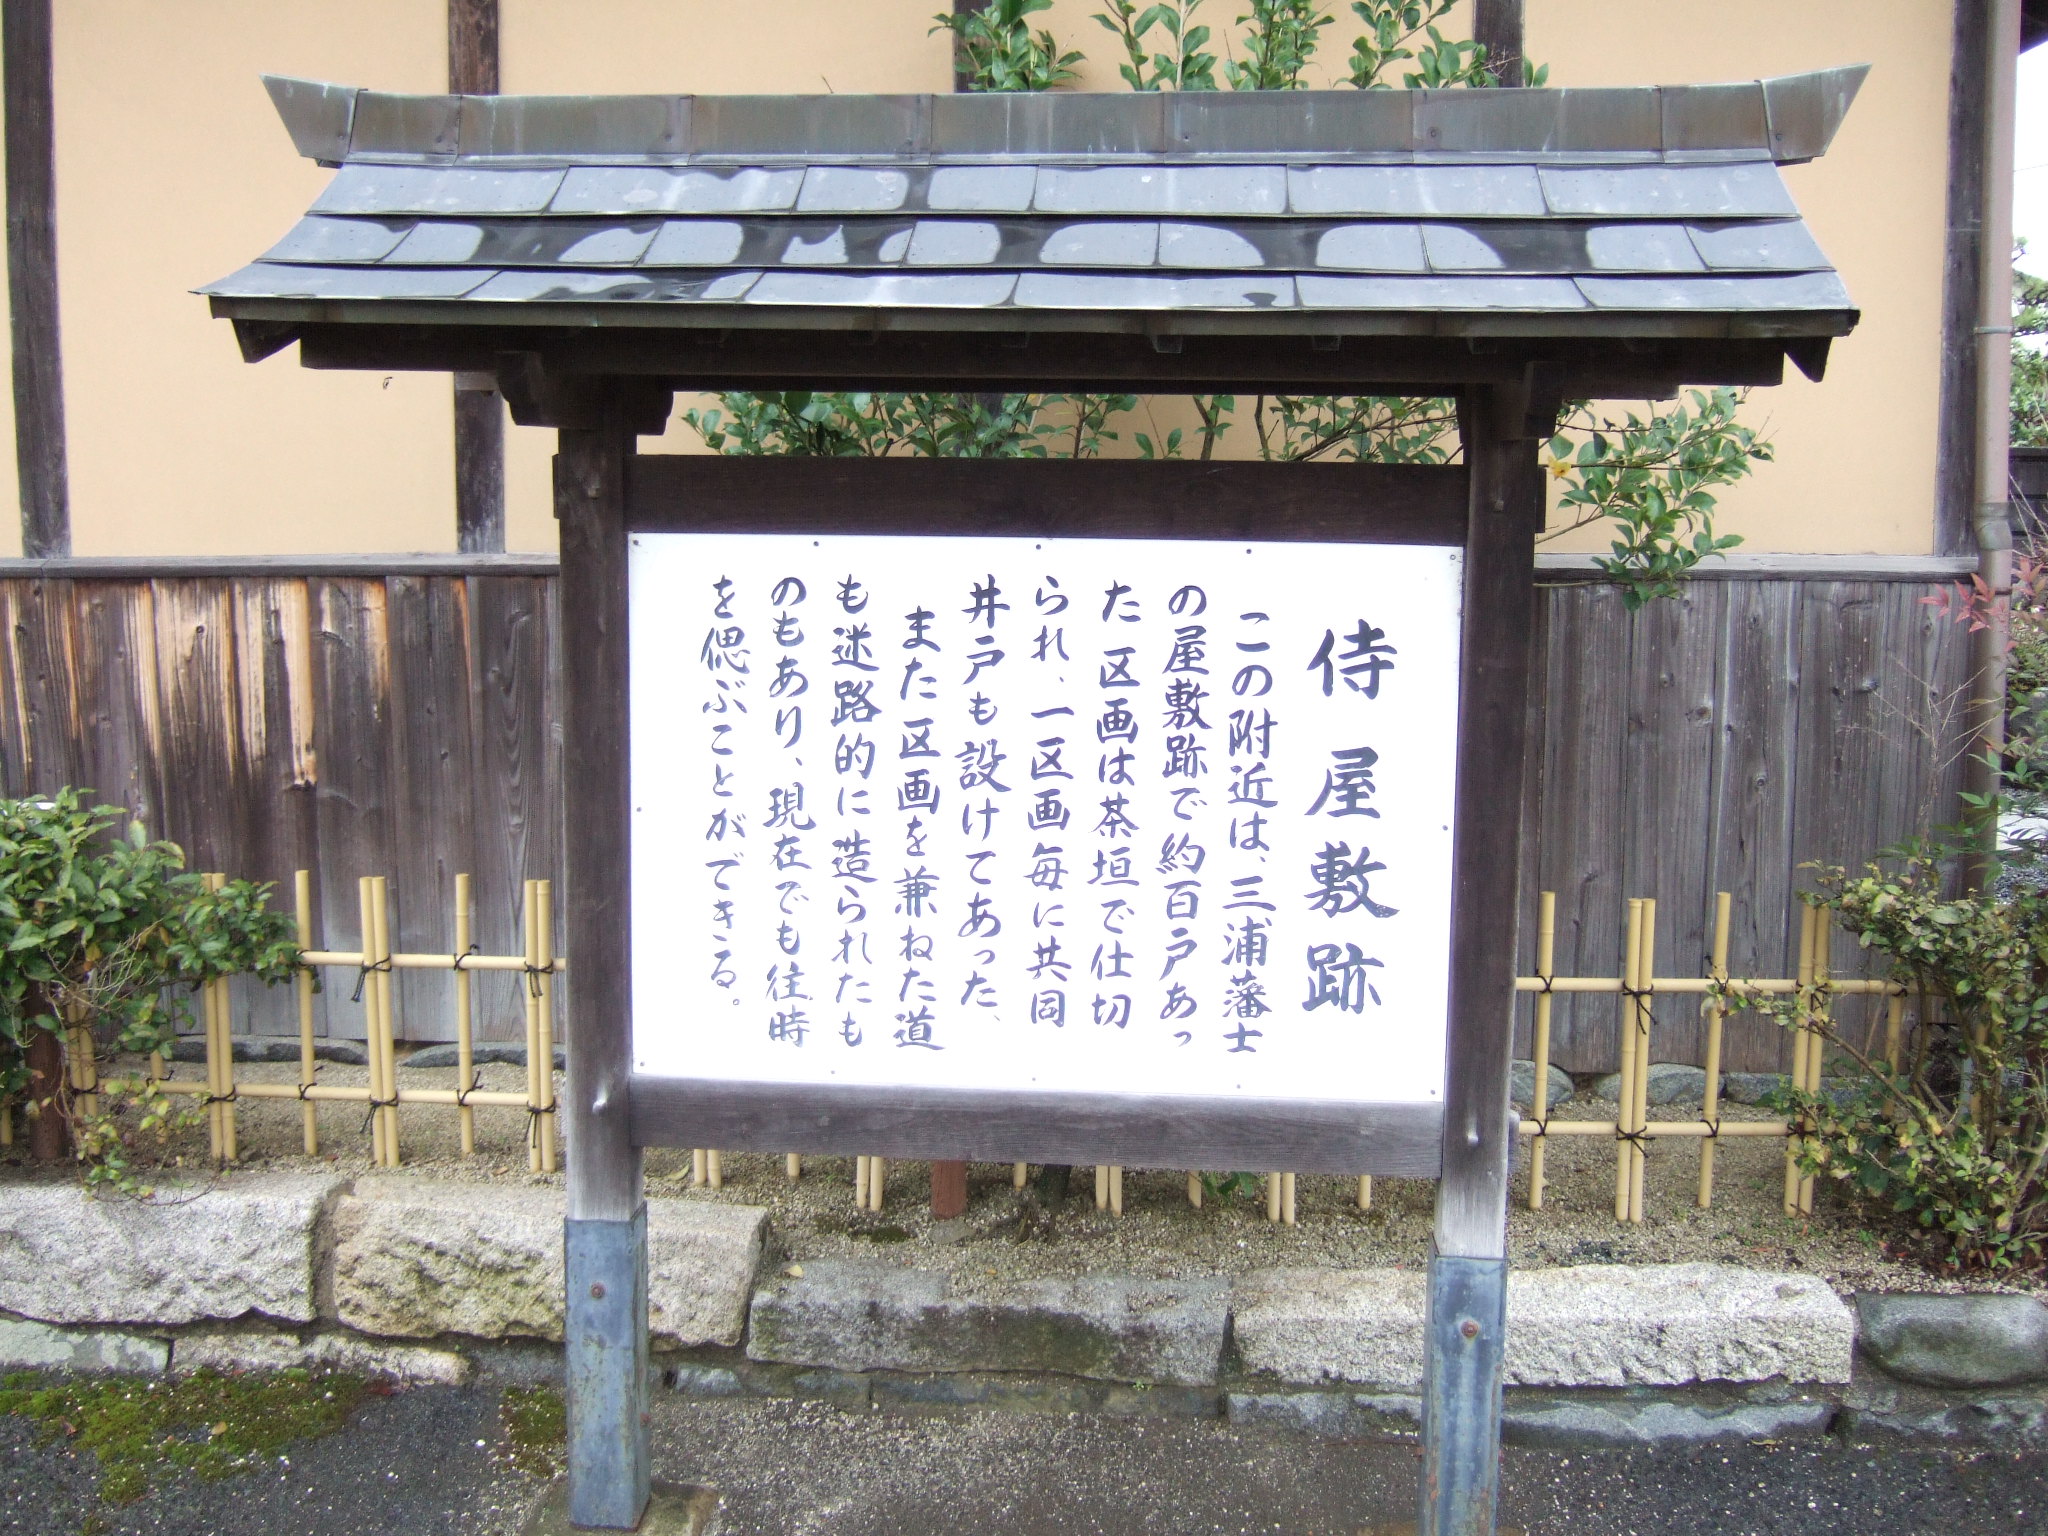 侍屋敷跡
この附近は、三浦藩士
の屋敷跡で約百戸あっ
た区画は茶垣で仕切
られ、一区画毎に共同
井戸も設けてあった、
また区画を兼ねた道
も迷路的に造られたも
のもあり、現在でも往時
を偲ぶことができる。